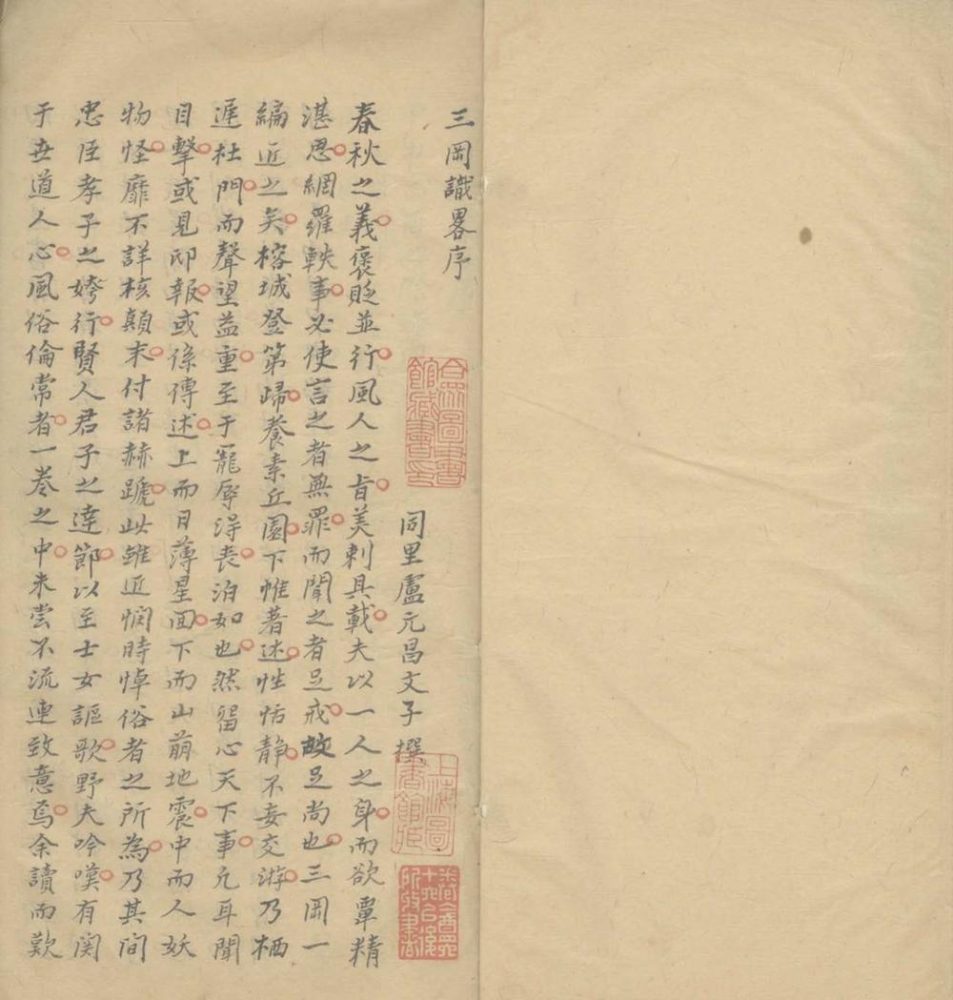 三岡識畧序
同里盧元昌文子撰
春秋之義褒貶並行風人之旨美刺具載夫以一人之身而欲覃精
湛思網羅軼事必使言之者無罪而聞之者足戒故足尚也三岡一
編近之矣榕城登第歸養素丘園下帷著述性恬静不妄交游乃栖
遲杜門而聲望益重至于寵辱得丧泊如也然留心天下事凡耳聞
目擊或見邸報或係傳述上而日薄星回下而山崩地震中而人妖
物怪靡不詳核顛末付諸赫蹏此雖近悯時悼俗者之所為乃其间
忠臣孝子之姱行賢人君子之達節以至士女謳歌野夫吟嘆有関
于世道人心風俗倫常者一卷之中未尝不流連致意焉余讀而歎
上海圖書館藏